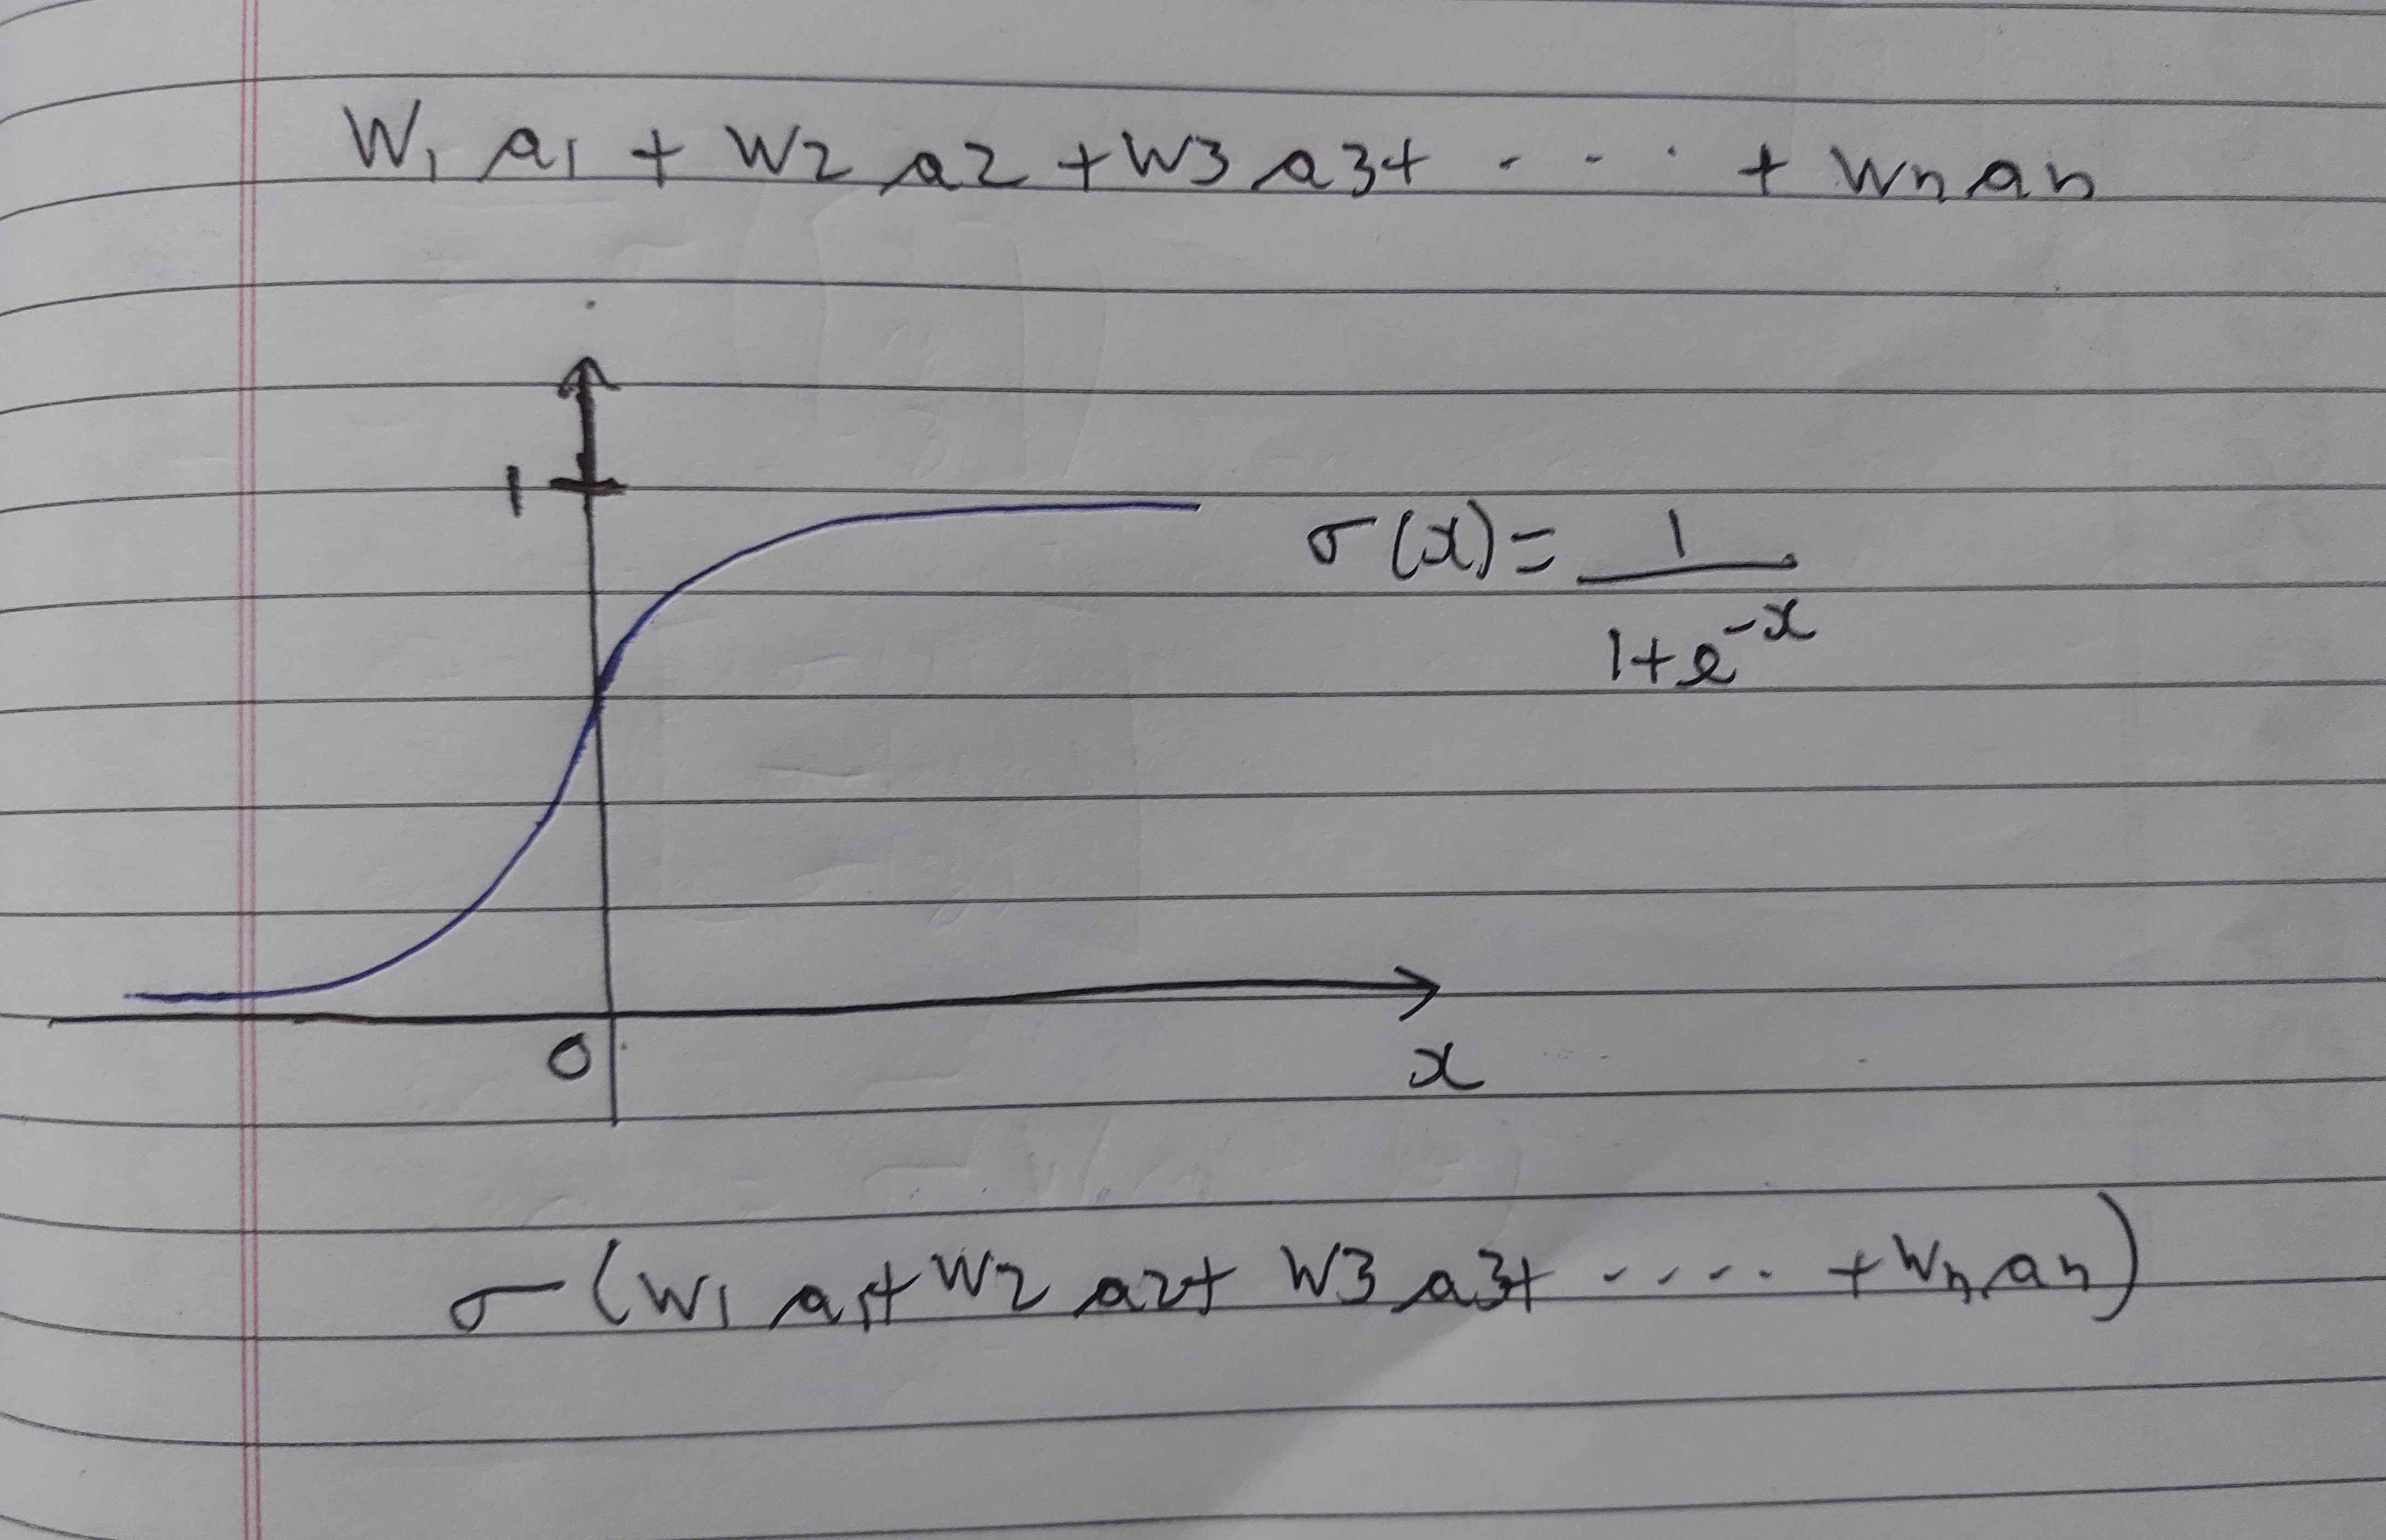 W1 a1 + W2 a2 + W3 a3 + . . . + Wn an
1
σ(x) = 1 / 1+e^-x
0
x
σ(W1 a1 + W2 a2 + W3 a3 + . . . . + Wn an)